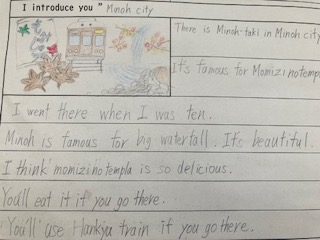 I introduce you " Minoh city
There is Minoh-taki in Minoh city
It's famous for Momizi no templa
I went there when I was ten.
Minoh is famous for big waterfall. It's beautiful.
I think momizi no templa is so delicious.
You'll eat it if you go there.
You'll use Hankyu train if you go there.